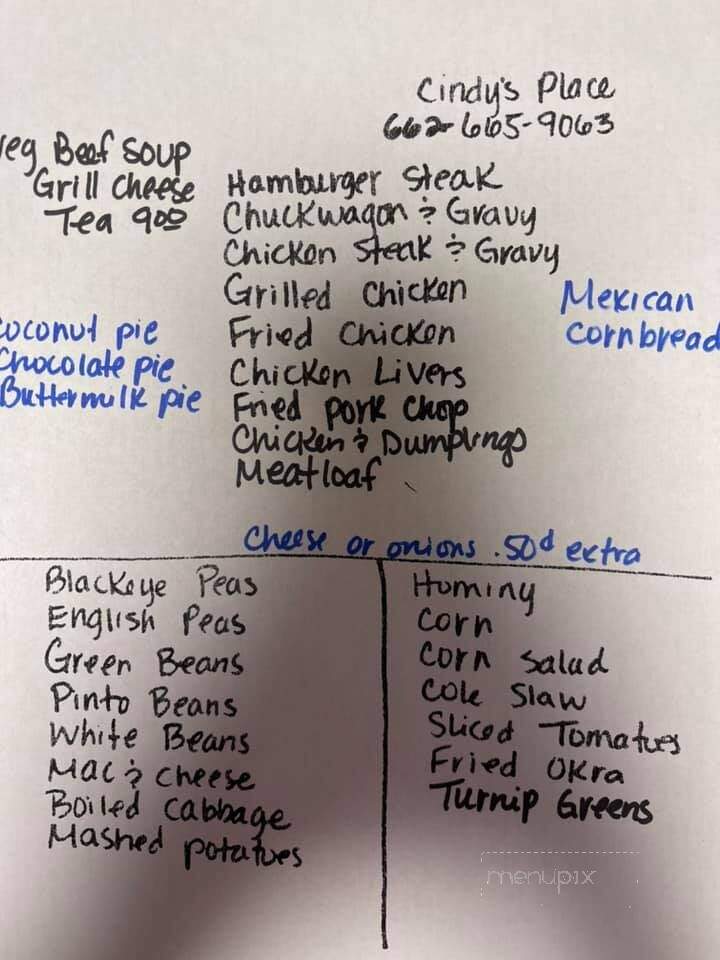 Cindy's Place
662-665-9063
veg Beef Soup
Grill Cheese
Tea 9.00
Hamburger Steak
Chuckwagon & Gravy
Chicken Steak & Gravy
Grilled Chicken
Fried Chicken
Chicken Livers
Fried Pork Chop
Chicken & Dumplings
Meatloaf
Mexican
Cornbread
Coconut pie
Chocolate pie
Buttermilk pie
Cheese or onions .50¢ extra
Blackeye Peas
English Peas
Green Beans
Pinto Beans
White Beans
Mac & Cheese
Boiled Cabbage
Mashed potatoes
Hominy
Corn
Corn Salad
Cole Slaw
Sliced Tomatoes
Fried Okra
Turnip Greens
menupix